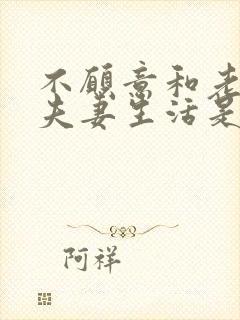 不愿意和老
夫妻生活是
阿祥